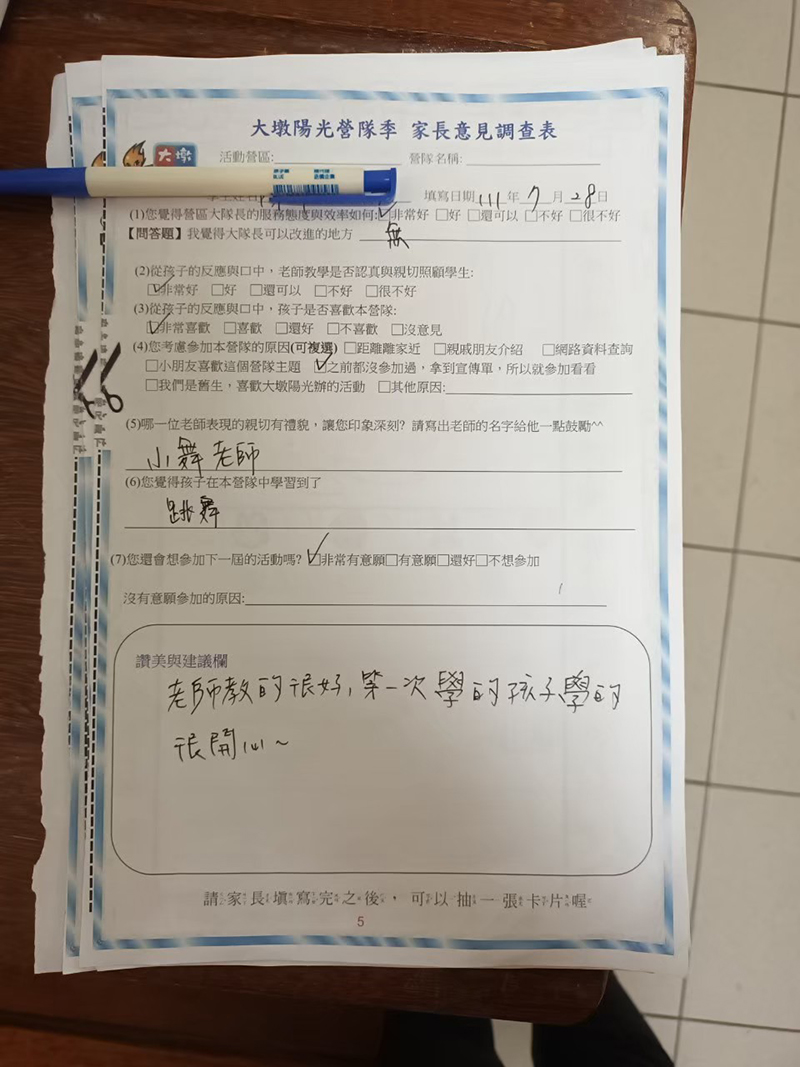 大墩陽光營隊季 家長意見調查表
大墩
活動營區: 營隊名稱:
填寫日期 111 年 7 月 28 日
(1)您覺得營區大隊長的服務態度與效率如何:☑非常好 □好 □還可以 □不好 □很不好
【問答題】我覺得大隊長可以改進的地方 無
(2)從孩子的反應與口中,老師教學是否認真與親切照顧學生:
☑非常好 □好 □還可以 □不好 □很不好
(3)從孩子的反應與口中,孩子是否喜歡本營隊:
☑非常喜歡 □喜歡 □還好 □不喜歡 □沒意見
(4)您考慮參加本營隊的原因(可複選) □距離離家近 □親戚朋友介紹 □網路資料查詢
□小朋友喜歡這個營隊主題 ☑之前都沒參加過,拿到宣傳單,所以就參加看看
□我們是舊生,喜歡大墩陽光辦的活動 □其他原因:
(5)哪一位老師表現的親切有禮貌,讓您印象深刻? 請寫出老師的名字給他一點鼓勵^^
小舞老師
(6)您覺得孩子在本營隊中學習到了
跳舞
(7)您還會想參加下一屆的活動嗎? ☑非常有意願□有意願□還好□不想參加
沒有意願參加的原因:
讚美與建議欄
老師教的很好,第一次學的孩子學的
很開心~
請家長填寫完之後,可以抽一張卡片喔
5